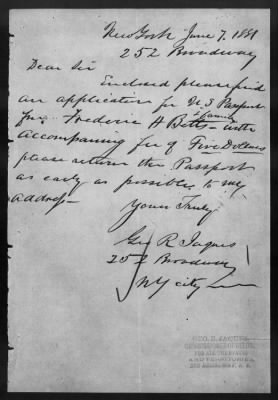 New York June 7, 1881
252 Broadway
Dear Sir
Enclosed please find
an application for U.S Passport
for Frederic H Betts & family with
accompaning fee of Five Dollars
please return the Passport
as early as possible to my
address -
Yours Truly
Geo R Jaques
252 Broadway
NY city
GEO. R. JAQUES,
COMMISSIONER OF DEEDS,
FOR ALL THE STATES
AND TERRITORIES,
252 BROADWAY, N. Y.